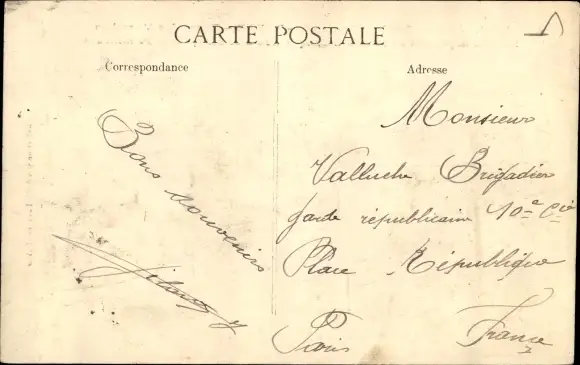 CARTE POSTALE
Correspondance
Adresse
Bons souvenirs
Monsieur
Valluche Brigadier
garde républicaine 10e Cie
Place République
Paris France